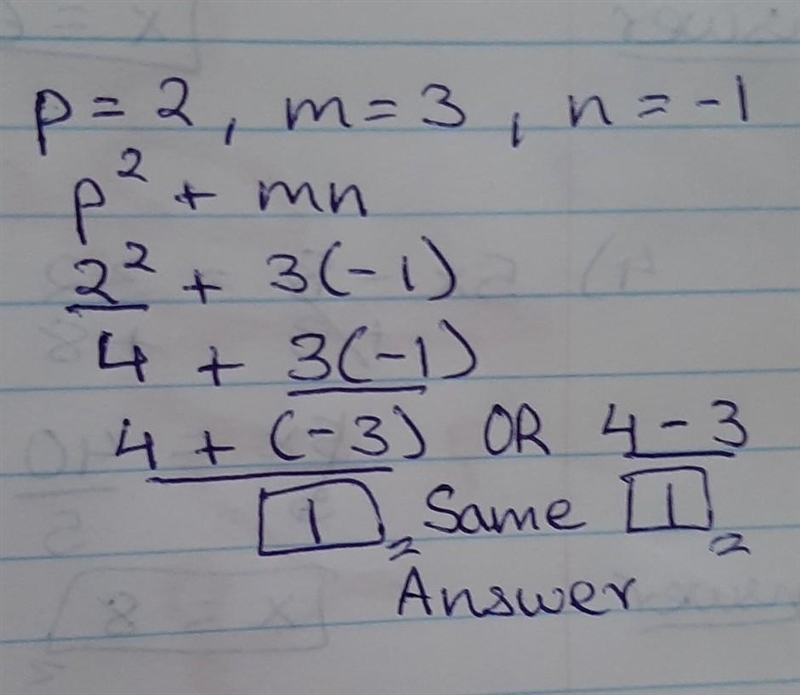 p = 2, m = 3, n = -1
p² + mn
2² + 3(-1)
4 + 3(-1)
4 + (-3) OR 4 - 3
1 Same 1
Answer